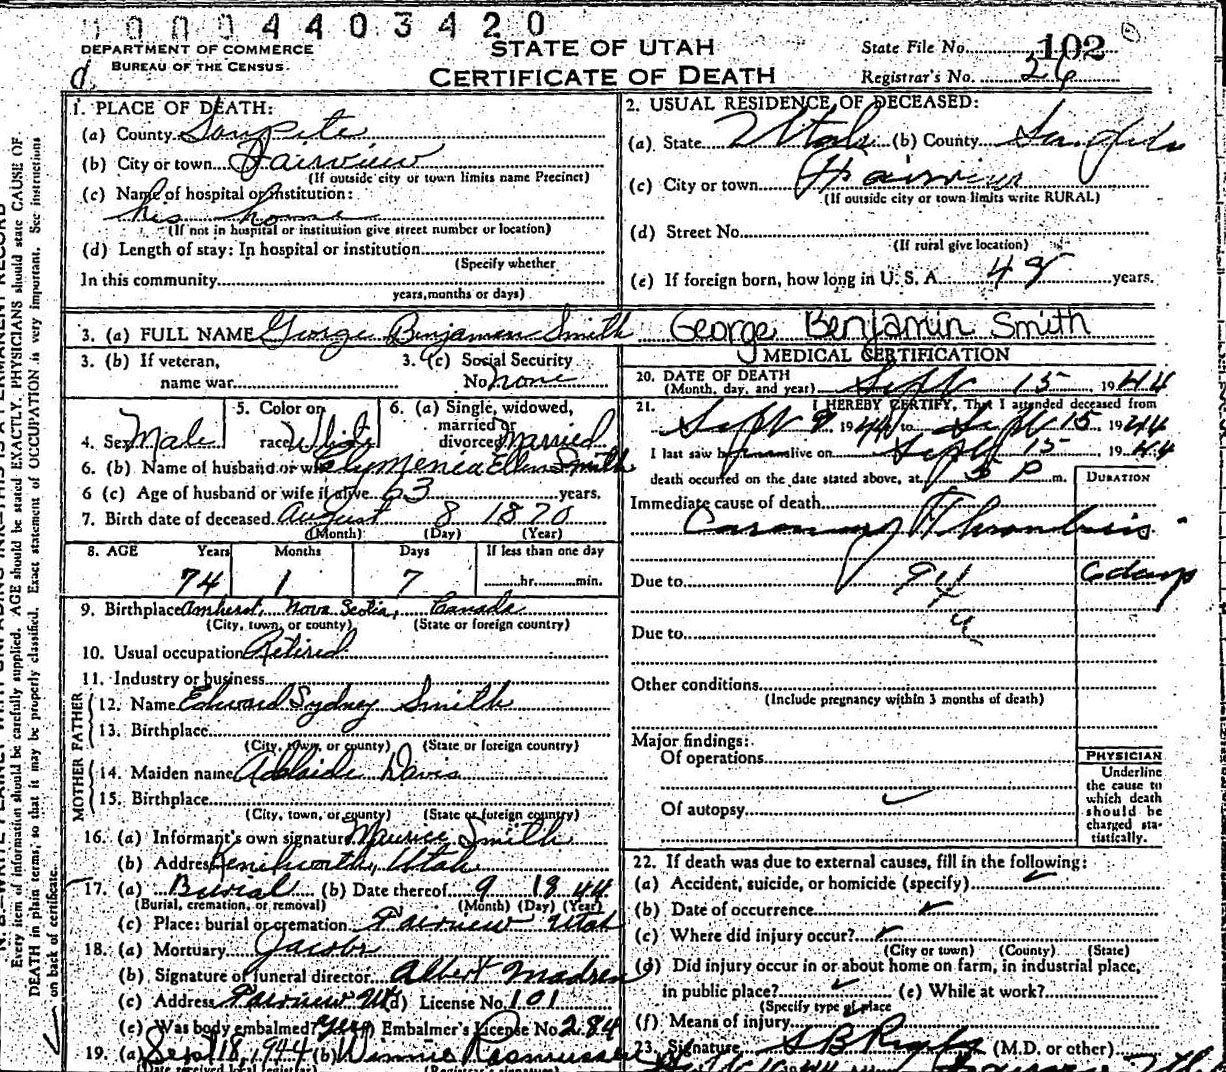 0004403420
DEPARTMENT OF COMMERCE
BUREAU OF THE CENSUS
d.
STATE OF UTAH
CERTIFICATE OF DEATH
State File No. 102
Registrar's No. 26
1. PLACE OF DEATH:
(a) County Sanpete
(b) City or town Fairview
(If outside city or town limits name Precinct)
(c) Name of hospital or institution:
his home
(If not in hospital or institution give street number or location)
(d) Length of stay: In hospital or institution
(Specify whether
In this community
years, months or days)
2. USUAL RESIDENCE OF DECEASED:
(a) State Utah (b) County
(c) City or town Fairview
(If outside city or town limits write RURAL)
(d) Street No.
(If rural give location)
(e) If foreign born, how long in U. S. A. years.
3. (a) FULL NAME George Benjamen Smith George Benjamin Smith
3. (b) If veteran,
name war
3. (c) Social Security
No. none
4. Sex Male
5. Color or
race White
6. (a) Single, widowed,
married or
divorced Married
6. (b) Name of husband or wife Clymenia Ellen Smith
6 (c) Age of husband or wife if alive 63 years.
7. Birth date of deceased August 8 1870
(Month) (Day) (Year)
8. AGE Years Months Days If less than one day
74 1 7 hr. min.
9. Birthplace Amherst, Nova Scotia, Canada
(City, town, or county) (State or foreign country)
10. Usual occupation Retired
11. Industry or business
FATHER
12. Name Edward Sydney Smith
13. Birthplace
(City, town, or county) (State or foreign country)
MOTHER
14. Maiden name Adelaide Davis
15. Birthplace
(City, town, or county) (State or foreign country)
16. (a) Informant's own signature Maurice Smith
(b) Address Kenilworth, Utah
17. (a) Burial (b) Date thereof 9 18 44
(Burial, cremation, or removal) (Month) (Day) (Year)
(c) Place: burial or cremation Fairview Utah
18. (a) Mortuary Jacobs
(b) Signature of funeral director Albert Madsen
(c) Address Fairview Ut (d) License No. 101
(e) Was body embalmed? yes (f) Embalmer's License No. 284
19. (a) Sept 18, 1944 (b) Winnie Rasmussen
(Date received local registrar) (Registrar's signature)
MEDICAL CERTIFICATION
20. DATE OF DEATH
(Month, day, and year) Sept 15, 1944
21. I HEREBY CERTIFY, That I attended deceased from
Sept 9 1944 to Sept 15 1944
I last saw him alive on Sept 15 1944
death occurred on the date stated above, at 5 P m.
DURATION
Immediate cause of death
Coronary Thrombosis
Due to 94 6 days
a
Due to
Other conditions
(Include pregnancy within 3 months of death)
Major findings:
Of operations
Of autopsy
PHYSICIAN
Underline
the cause to
which death
should be
charged sta-
tistically.
22. If death was due to external causes, fill in the following:
(a) Accident, suicide, or homicide (specify)
(b) Date of occurrence
(c) Where did injury occur?
(City or town) (County) (State)
(d) Did injury occur in or about home on farm, in industrial place,
in public place? (e) While at work?
(Specify type of place
(f) Means of injury
23. Signature S B Rigby (M.D. or other)
Every item of information should be carefully supplied. AGE should be stated EXACTLY. PHYSICIANS should state CAUSE OF
DEATH in plain terms, so that it may be properly classified. Exact statement of OCCUPATION is very important. See instructions
on back of certificate.